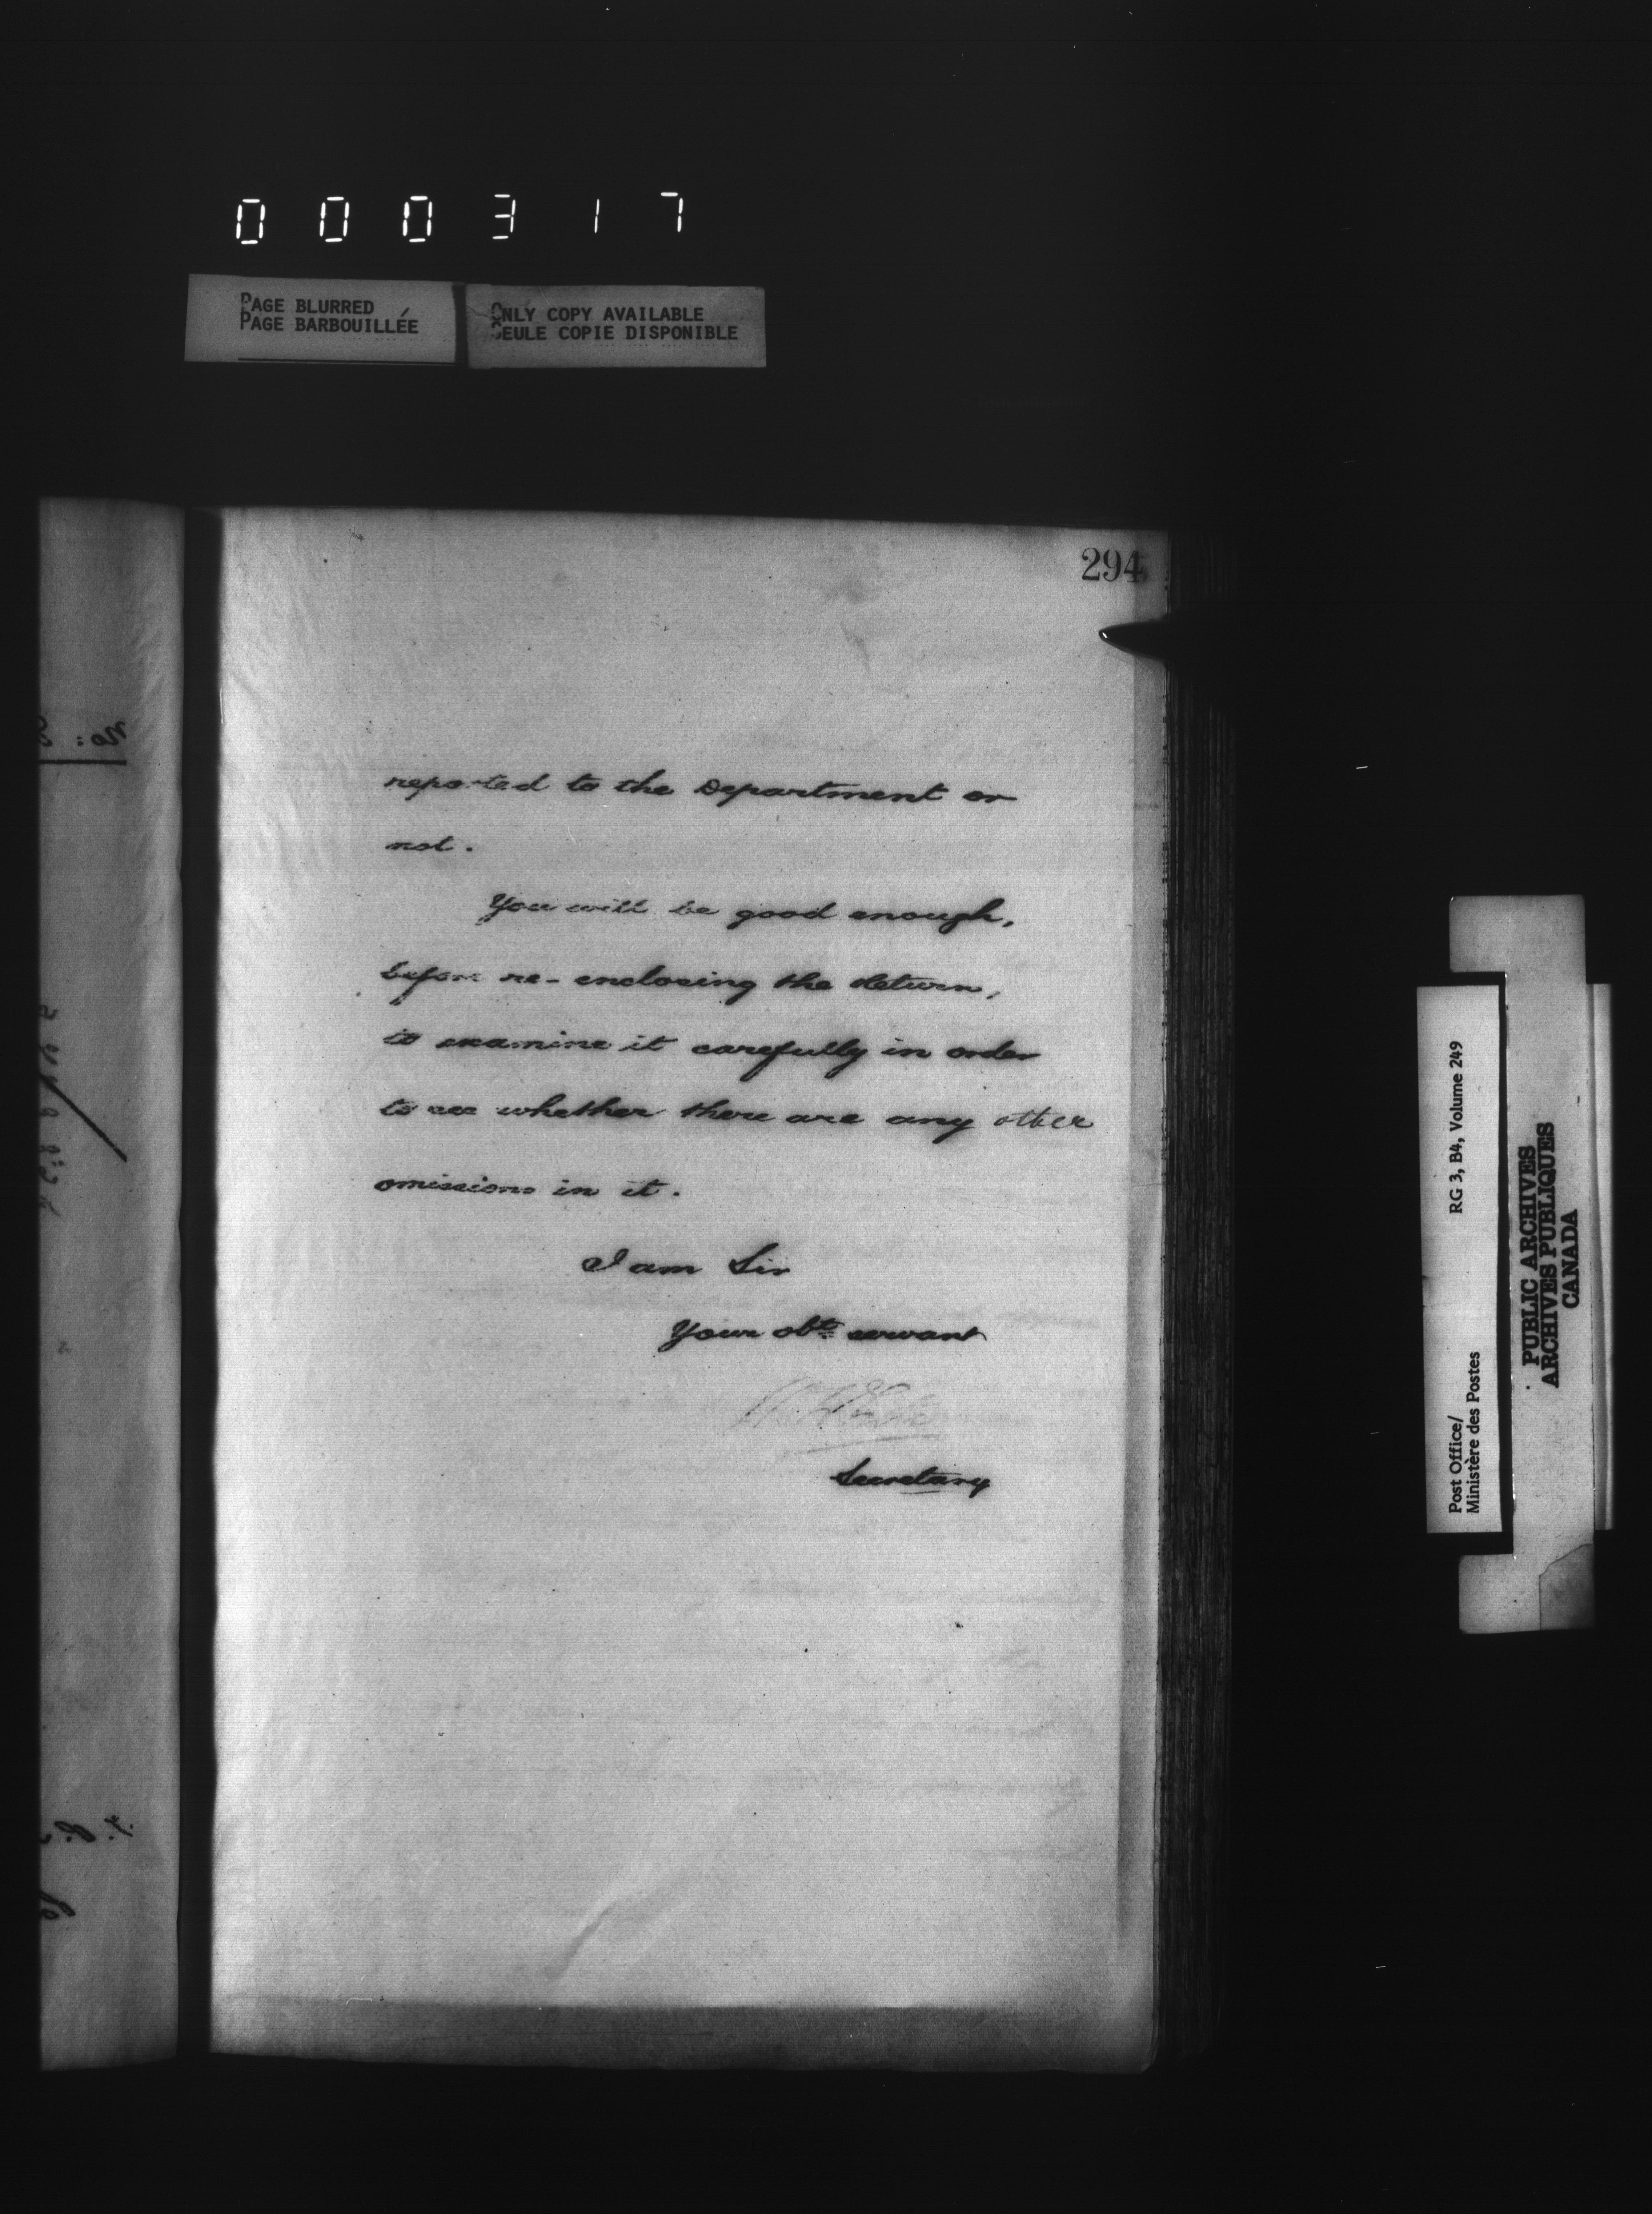 000317
PAGE BLURRED
PAGE BARBOUILLÉE
ONLY COPY AVAILABLE
SEULE COPIE DISPONIBLE
294
reported to the Department or
not.
You will be good enough,
before re-enclosing the Return,
to examine it carefully in order
to see whether there are any other
omissions in it.
I am Sir
Your obt. servant
Secretary
No:
Post Office/
Ministère des Postes
RG 3, B4, Volume 249
PUBLIC ARCHIVES
ARCHIVES PUBLIQUES
CANADA